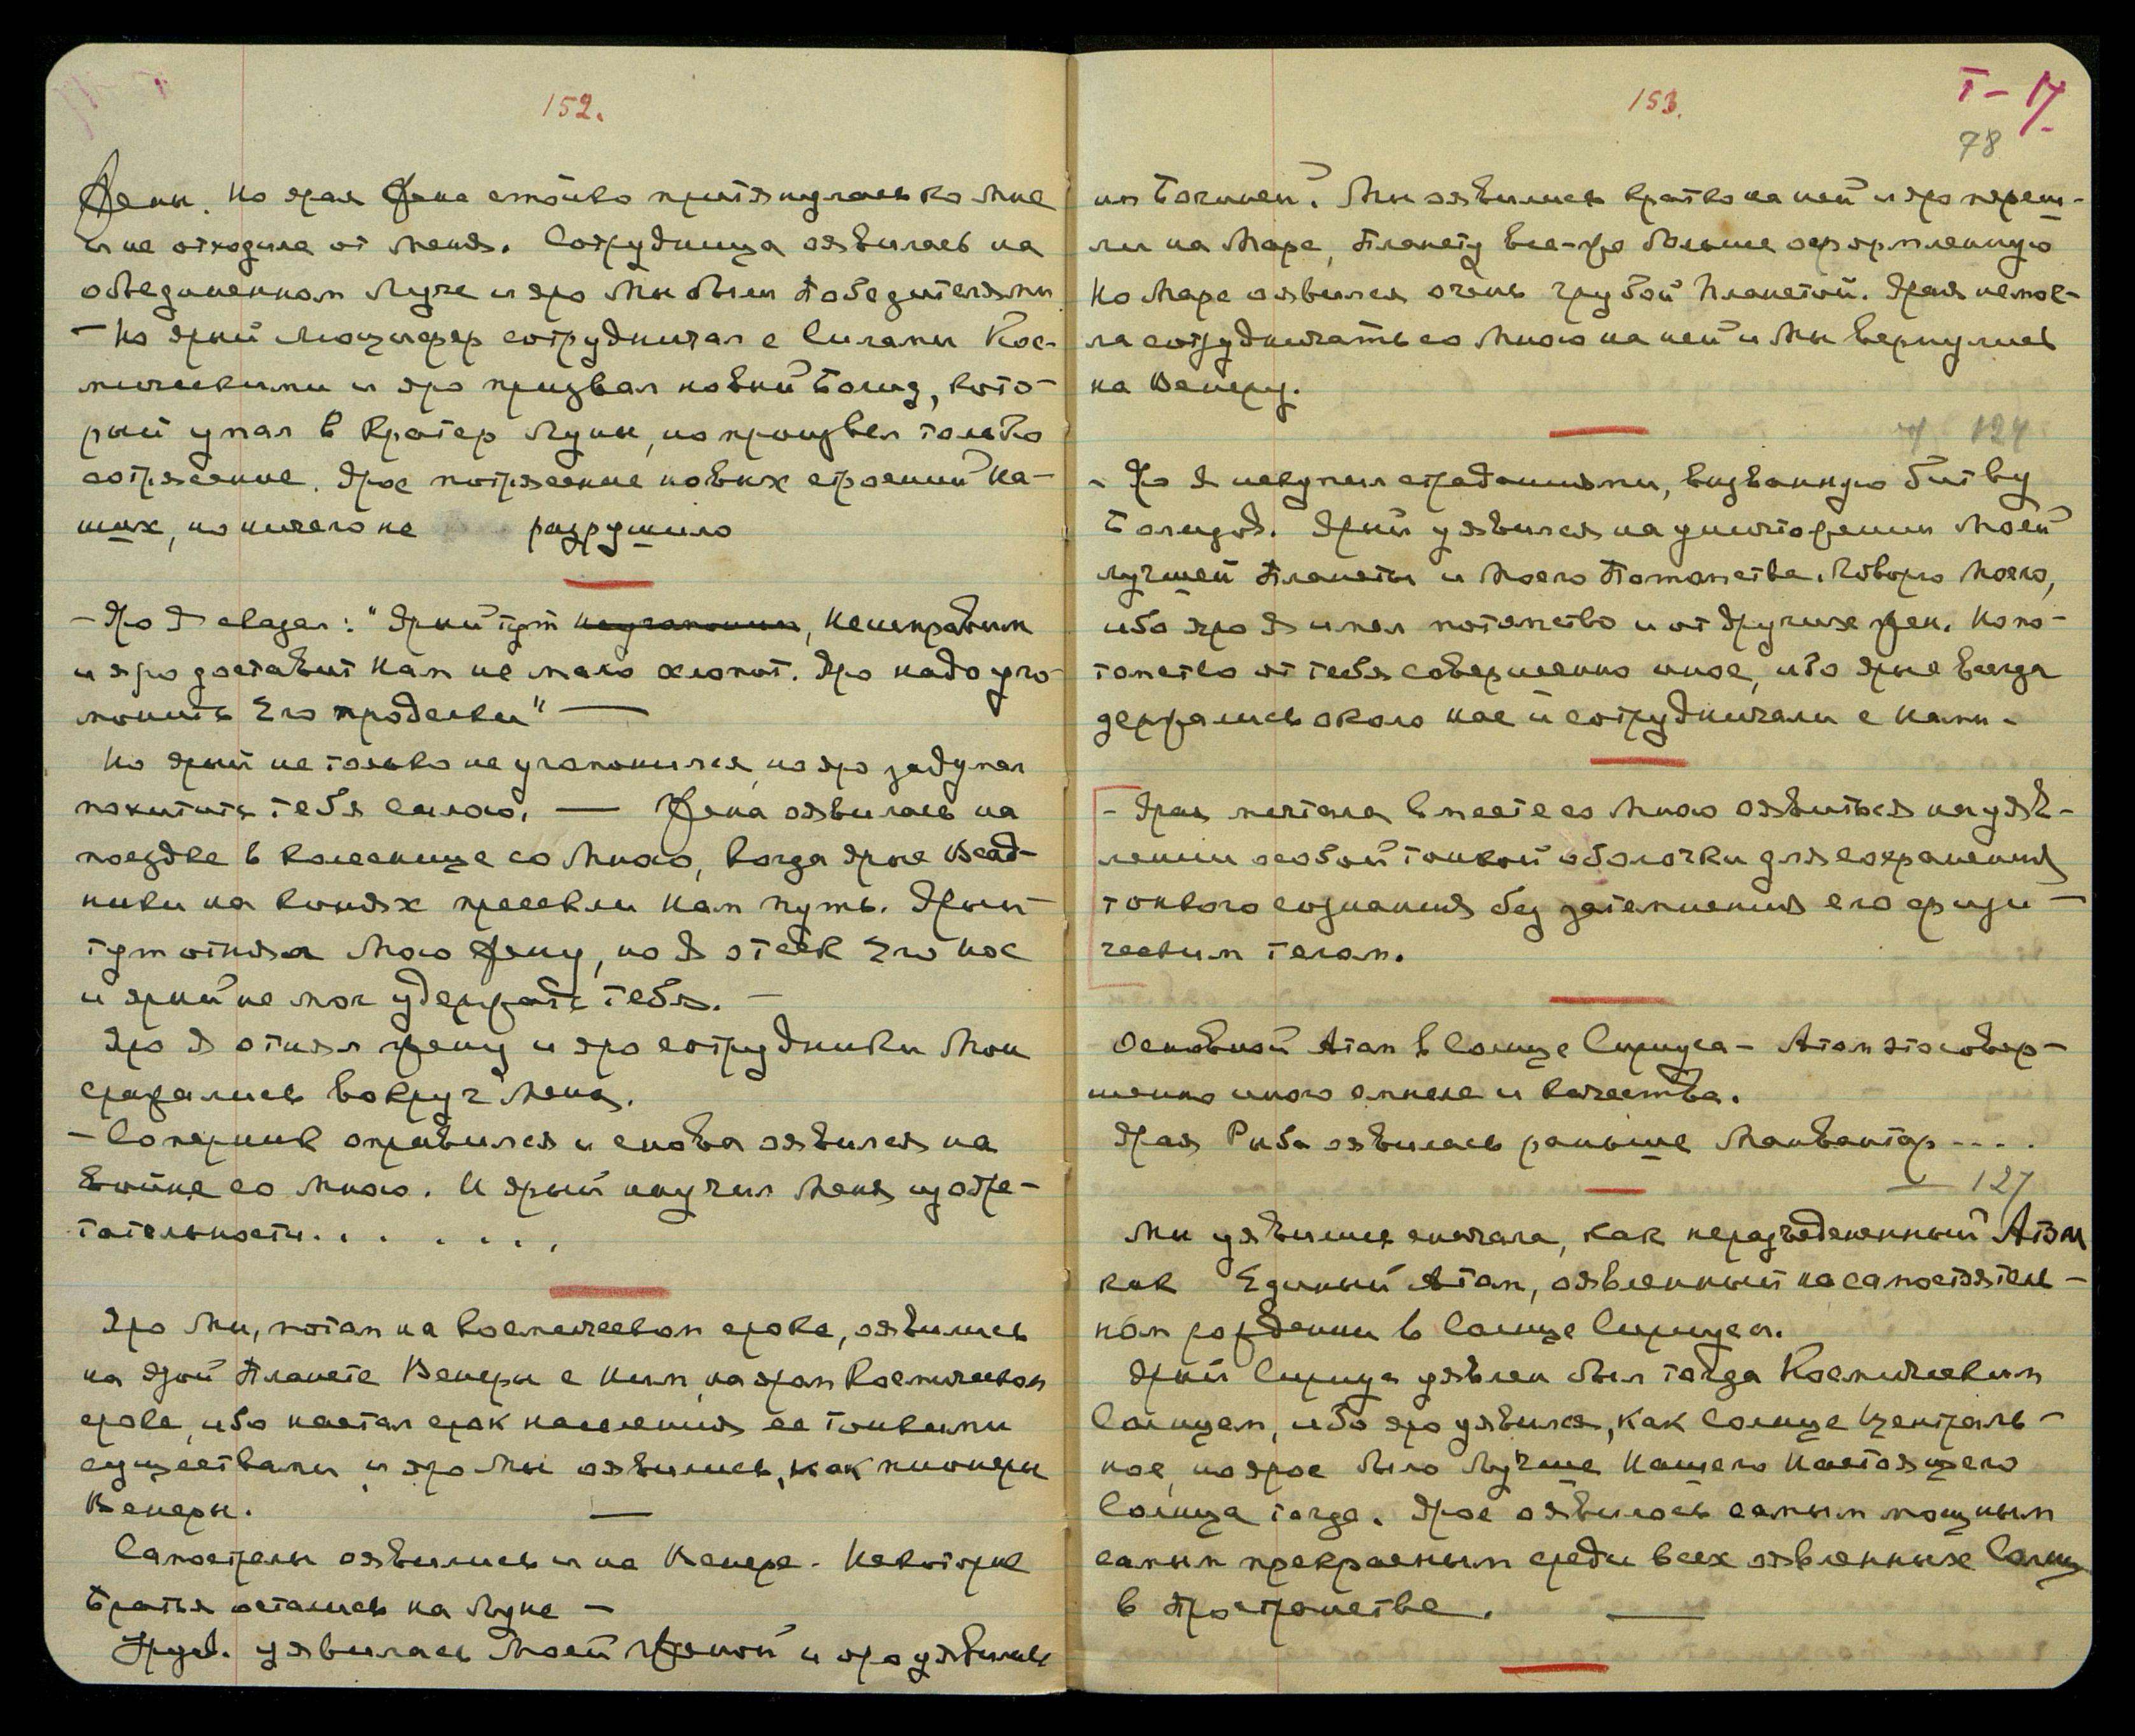 152.
Жены. Но ярая Жена стойко притянулась ко Мне
и не отходила от Меня. Сотрудница оявилась на
объединенном Луче и яро Мы были Победителями
— Но ярый Люцифер сотрудничал с Силами Кос-
мическими и яро призвал новый Болид, кото-
рый упал в Кратер Луны, но произвел только
сотрясение. Ярое потрясение новых строений На-
ших, но ничего не разрушило
— Яро Я сказал: "Ярый тут неугомонен, Неисправим
и яро доставит Нам не мало хлопот. Яро надо уго-
монить Его проделки" —
Но ярый не только не угомонился, но яро задумал
похитить тебя силою. — Жена оявилась на
поездке в колеснице со Мною, когда ярые Всад-
ники на конях пресекли Нам путь. Ярый
тут отнял Мою Жену, но Я отсек Его Нос
и ярый не мог удержать тебя. —
Яро Я отнял жену и яро сотрудники Мои
сражались вокруг Меня.
— Соперник оправился и снова оявился на
Войне со Мною. И ярый научил Меня изобре-
тательности. . . . . . .
Яро Мы, потом на Космическом сроке, оявились
на ярой Планете Венеры с Ним, на яром Космическом
сроке, ибо настал срок населения ее тонкими
существами и яро Мы оявились, как пионеры
Венеры.
Самострелы оявились и на Венере. Некоторые
Братья остались на Луне —
уявилась Моей Женой и яро уявилась
153.
I - 17
78
их Богиней. Мы оявились кратко на ней и яро переш-
ли на Марс, Планету все-же больше оформленную
Но Марс оявился очень грубой Планетой. Ярая не мог-
ла сотрудничать со Мною на ней и Мы вернулись
на Венеру.
124
- Яро Я искупил страданиями, вызванную битву
Болидов. Ярый уявился на уничтожении Моей
лучшей Планеты и Моего Потомства. Говорю Моего,
ибо яро Я имел потомство и от других жен. Но по-
томство от тебя совершенно иное, ибо ярые всегда
держались около нас и сотрудничали с Нами.
- Ярая мечтала вместе со Мною оявиться на уяв-
лении особой тонкой оболочки для сохранения
тонкого сознания без затемнения его физи-
ческим телом.
Основной Атом в Солнце Сириуса - Атом этот совер-
шенно иного смысла и качества.
Ярая Рыба оявилась раньше Манвантар ....
127
Мы уявились сначала, как неразъединенный Атом
как Единый Атом, оявленный на самостоятель-
ном рождении в Солнце Сириуса.
Ярый Сириус уявлен был тогда Космическим
Солнцем, ибо яро уявился, как Солнце Централь-
ное, но ярое было Лучше Нашего Настоящего
Солнца тогда. Ярое оявилось самым мощным
самым прекрасным среди всех оявленных Солнц
в Пространстве.